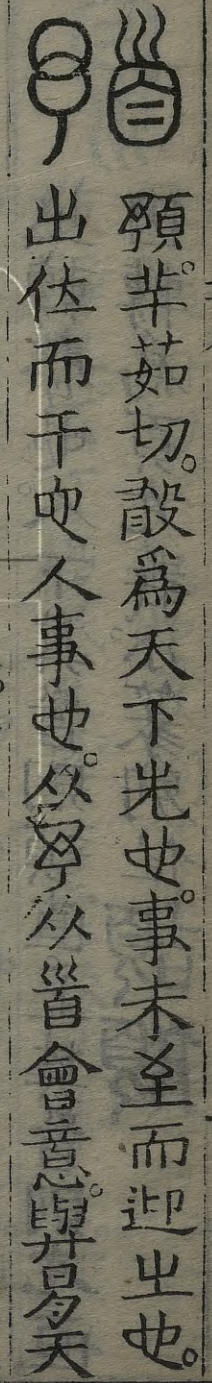 預。羊茹切。敢爲天下先也。事未至而迎之也。
出位而干它人事也。从予从𩠐會意。與易天